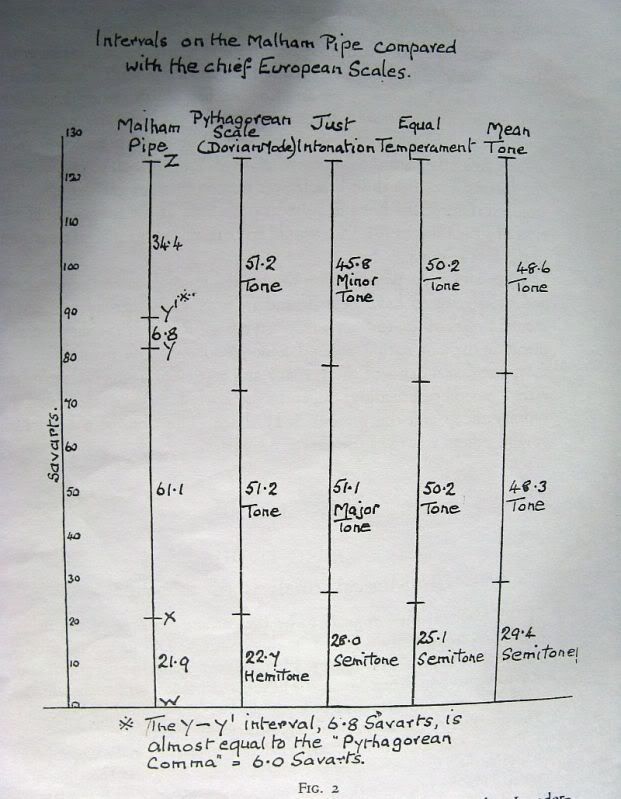 Intervals on the Malham Pipe compared
with the chief European Scales.
Malham
Pipe
Pythagorean
Scale
(Dorian Mode)
Just
Intonation
Equal
Temperament
Mean
Tone
Savarts.
130
120
110
100
90
80
70
60
50
40
30
20
10
0
Z
34.4
Y'※
6.8
Y
61.1
X
21.9
W
51.2
Tone
51.2
Tone
22.4
Hemitone
45.8
Minor
Tone
51.1
Major
Tone
28.0
Semitone
50.2
Tone
50.2
Tone
25.1
Semitone
48.6
Tone
48.3
Tone
29.4
Semitone
※ The Y-Y' interval, 6.8 Savarts, is
almost equal to the "Pythagorean
Comma" = 6.0 Savarts.
FIG. 2